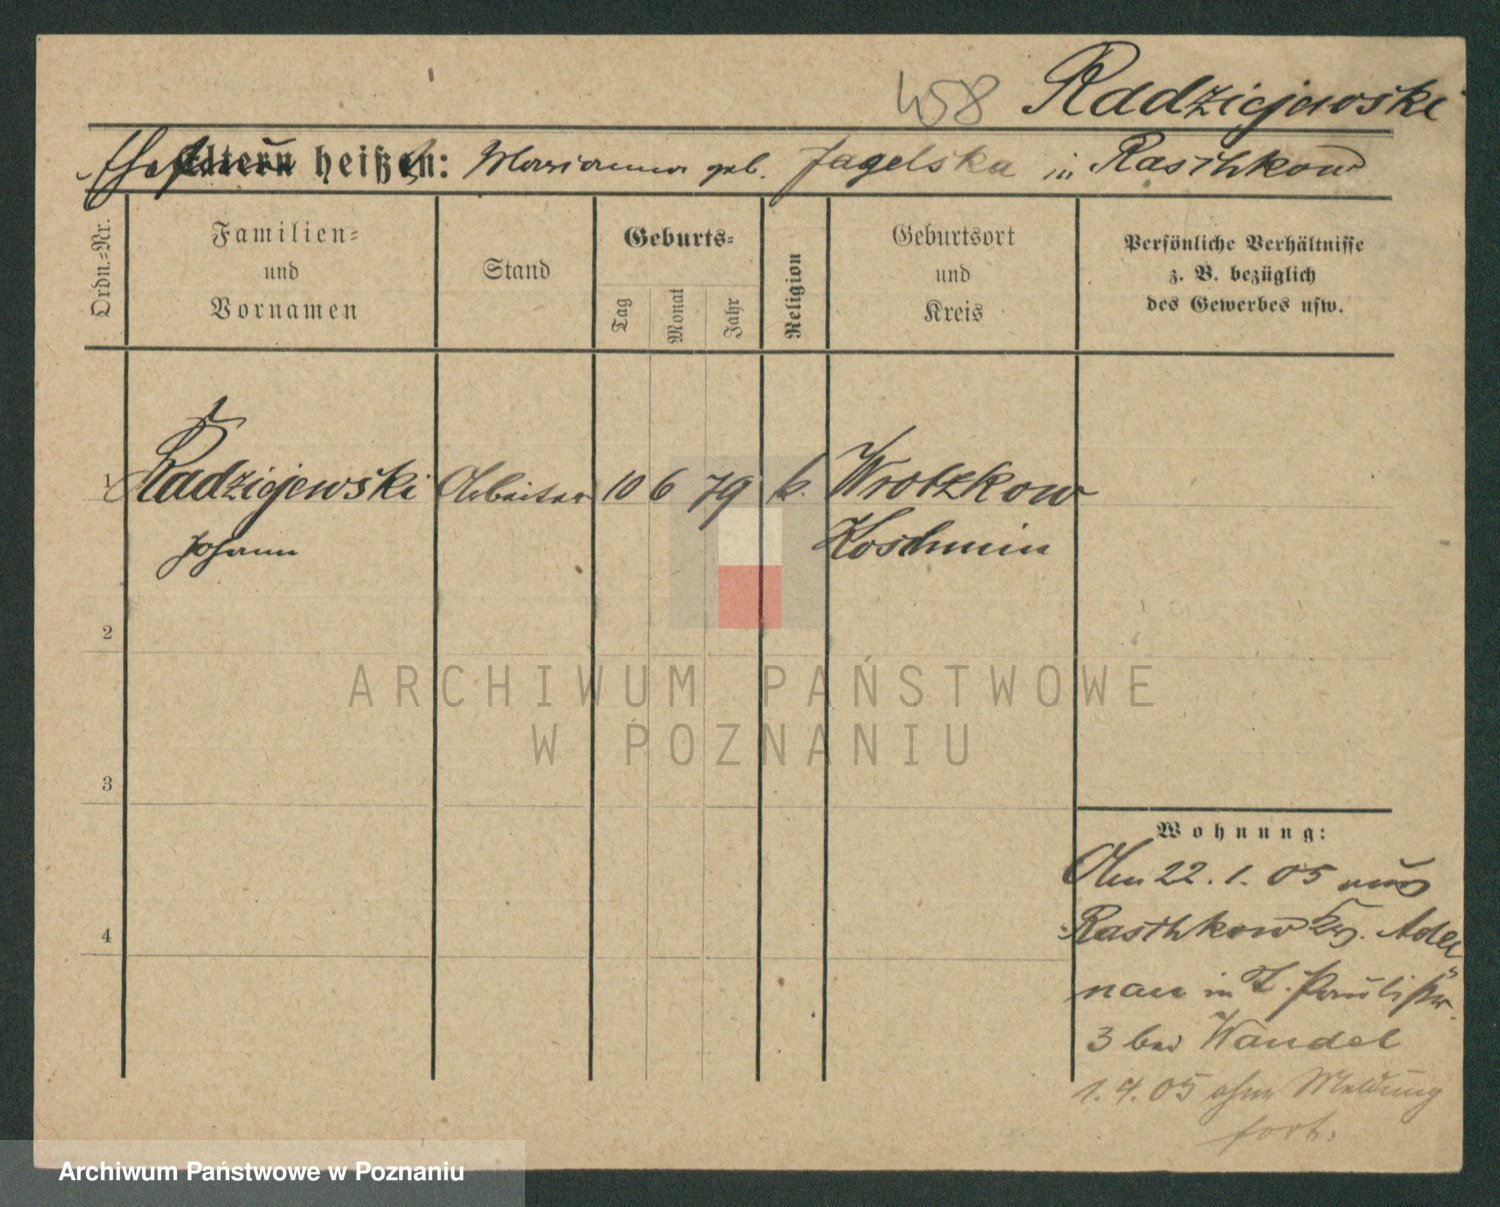 458 Radziejewski
Ehefrau heißt: Marianna geb. Jagelska in Raschkow
Ordn.-Nr.
Familien-
und
Vornamen
Stand
Geburts-
Tag
Monat
Jahr
Religion
Geburtsort
und
Kreis
Persönliche Verhältnisse
z. B. bezüglich
des Gewerbes usw.
1 Radziejewski Arbeiter 10 6 79 k. Wrotzkow
Johann Koschmin
2
3
4
Wohnung:
Am 22.1.05 aus
Raschkow Kr. Adel
nau in Z. Paulistr.
3 bei Wandel
1.4.05 ohne Meldung
fort.
ARCHIWUM PAŃSTWOWE
W POZNANIU
Archiwum Państwowe w Poznaniu